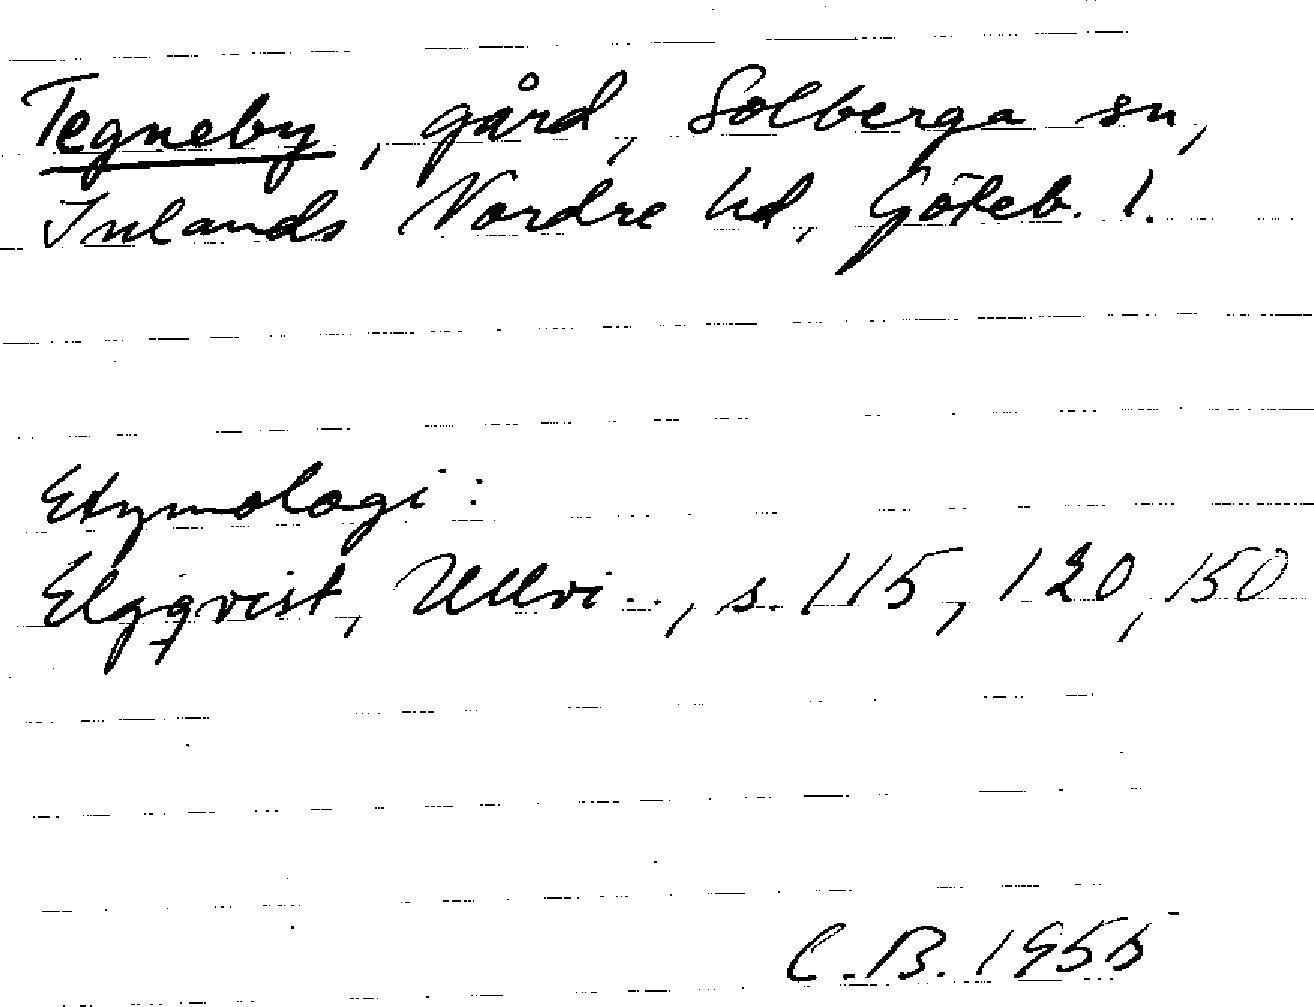 Tegneby, gård, Solberga sn,
Inlands Nordre hd, Göteb. l.
Etymologi:
Elgqvist, Ullvi.., s. 115, 120, 150
C.B. 1955